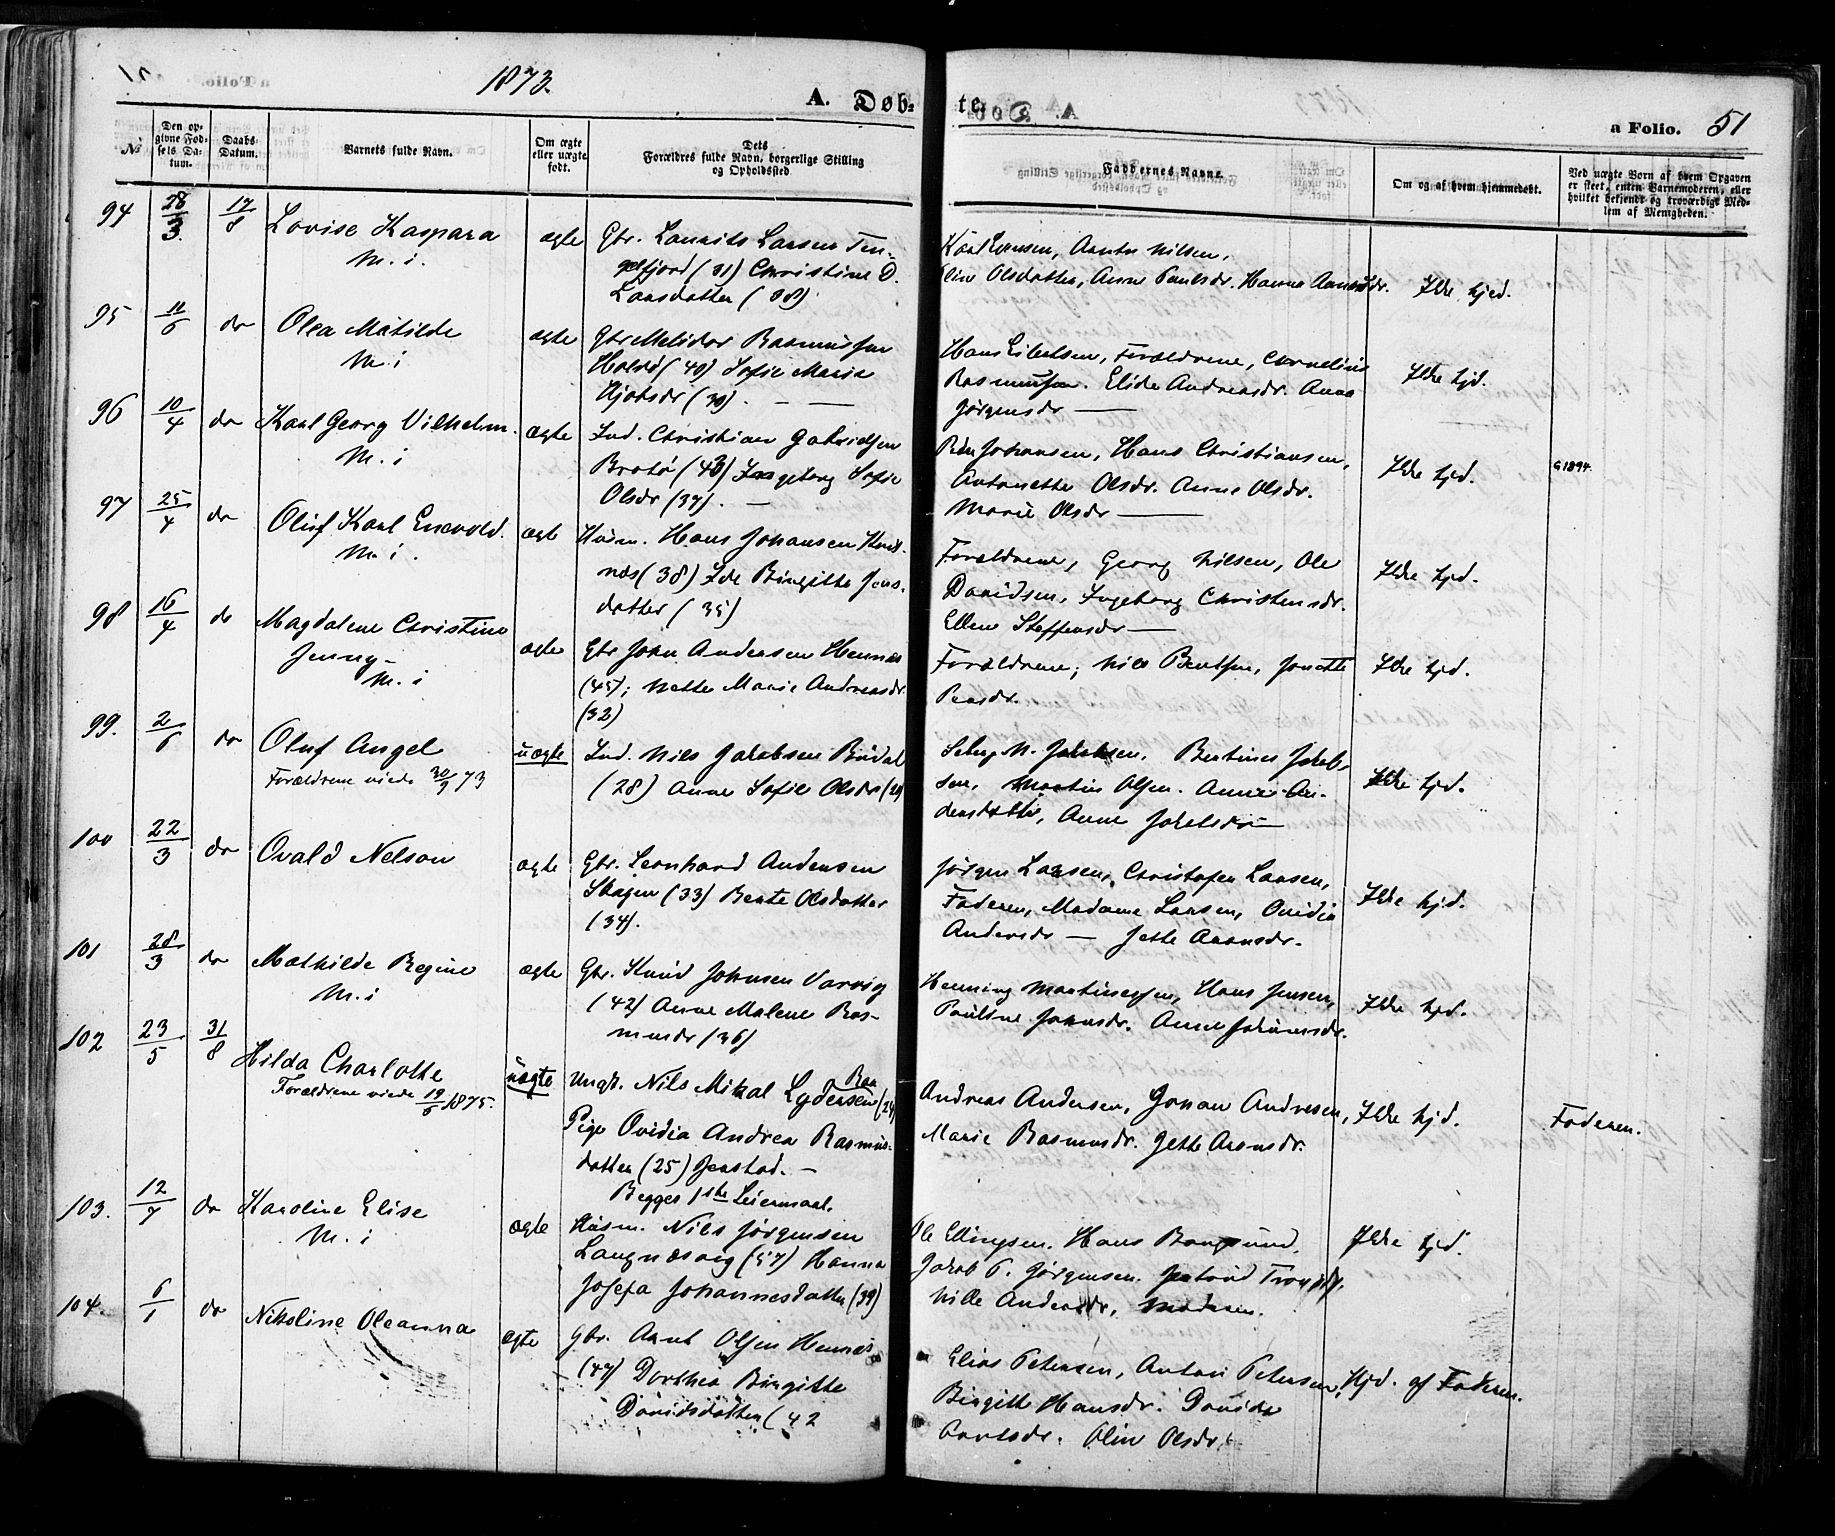 1873.
A. Døb-
te.
a Folio. 51
№
Den op-
givne Fød-
sels Da-
tum.
Daabs-
Datum.
Barnets fulde Navn.
Om ægte
eller uægte
født.
Dets
Forældres fulde Navn, borgerlige Stilling
og Opholdssted.
Faddernes Navne.
Om og af hvem hjemmedøbt.
Ved uægte Børn af hvem Opgaven
er skeet, enten Barnemoderen, eller
hvilket bekjendt og troværdigt Med-
lem af Menigheden.
94 28/3 17/8 Lovise Kaspara
M. i.
ægte Gbr. Laurits Larsen Ten-
gelfjord (31) Christine O.
Larsdatter (38)
Nilsen,
Olsdatter, Anne Paulsdr. Hanna
Ikke hjed.
95 11/6 do Olea Matilde
M. i
ægte Gbr Melidor Rasmussen
Holdø (40) Sofie Maria
Hjorsdr (30). — —
Hans Eibertsen, Forældrene, Cornelius
Rasmussen. Elida Andreasdr. Anna
Jørgensdr —
Ikke hjd.
96 10/4 do Karl Georg Vilhelm.
M. i
ægte Ind. Christian Gabrielsen
Brotø (40) Ingeborg Sofie
Olsdr (37). —
Peder Johansen, Hans Christiansen,
Antonette Olsdr. Anne Olsdr.
Marie Olsdr —
Ikke hjd.
G 1894.
97 25/4 do Oluf Karl Enevold.
M. i.
ægte Husm. Hans Johansen
næs (38) Ide Birgitte Jens-
datter (35)
Forældrene, Georg Nilsen, Ole
Davidsen, Ingeborg Christensdr.
Ellen Steffensdr —
Ikke hjd.
98 16/4 do Magdalene Christine
Jenny —
M. i
ægte Gbr John Andersen Hennes
(45); Nette Marie Andreasdr.
(32)
Forældrene, Nils Bentsen, Jonette
Pensdr.
Ikke hjd.
99. 2/6 do Oluf Angel
Forældrene viede 30/9 73
uægte Ind. Nils Jakobsen Budal
(28) Anne Sofie Olsdr
M. Jakobsen. Bertinus Jakob-
sen, Martin Olsen. Anne An-
dersdatter, Anne Jakobsdr —
Ikke hjd.
100 22/3 do Ovald Nelson
ægte Gbr. Leonhard Andersen
Skagen (33) Berte Olsdatter
(34).
Jørgen Larsen, Christofer Larsen,
Faderen, Madame Larsen, Ovidia
Andersdr — Jette Aronsdr.
Ikke hjd.
101 28/3 do Mathilde Regine
M. i
ægte Gbr. Knud Johnsen Varvig
(42) Anne Malene Ras-
musdr (36)
Henning Martinussen, Hans Jensen,
Pauline Johnsdr. Anne
Ikke hjd.
102 23/5 31/8 Hilda Charlotte
Forældrene viede 19/6 1875.
uægte Ungk. Nils Mikal Lydersen
Pige Ovidia Andrea Rasmus-
datter (25) Jenstad. —
Begges 1ste Leiermaal.
Andreas Andersen, Johan Andresen,
Marie Rasmusdr. Jette Aronsdr.
Ikke hjd.
Faderen.
103. 12/7 do Karoline Elise
M. i
ægte Husm. Nils Jørgensen
Langnæsvig (57) Hanna
Josefa Johannesdatter (39)
Ole Ellingsen. Hans
Jakob P. Jørgensen.
Nille Andersdr, Moderen.
Ikke hjd.
104. 6/1 do Nikoline Oleanna
ægte Gbr. Arnt Olsen Hennes
(47) Dorthea Birgitte
Davidsdatter (42
Elias Petersen, Anton Petersen,
Birgitte Hansdr. Davida
Arntsdr. Olin Olsdr.
Hjd. af Faderen.